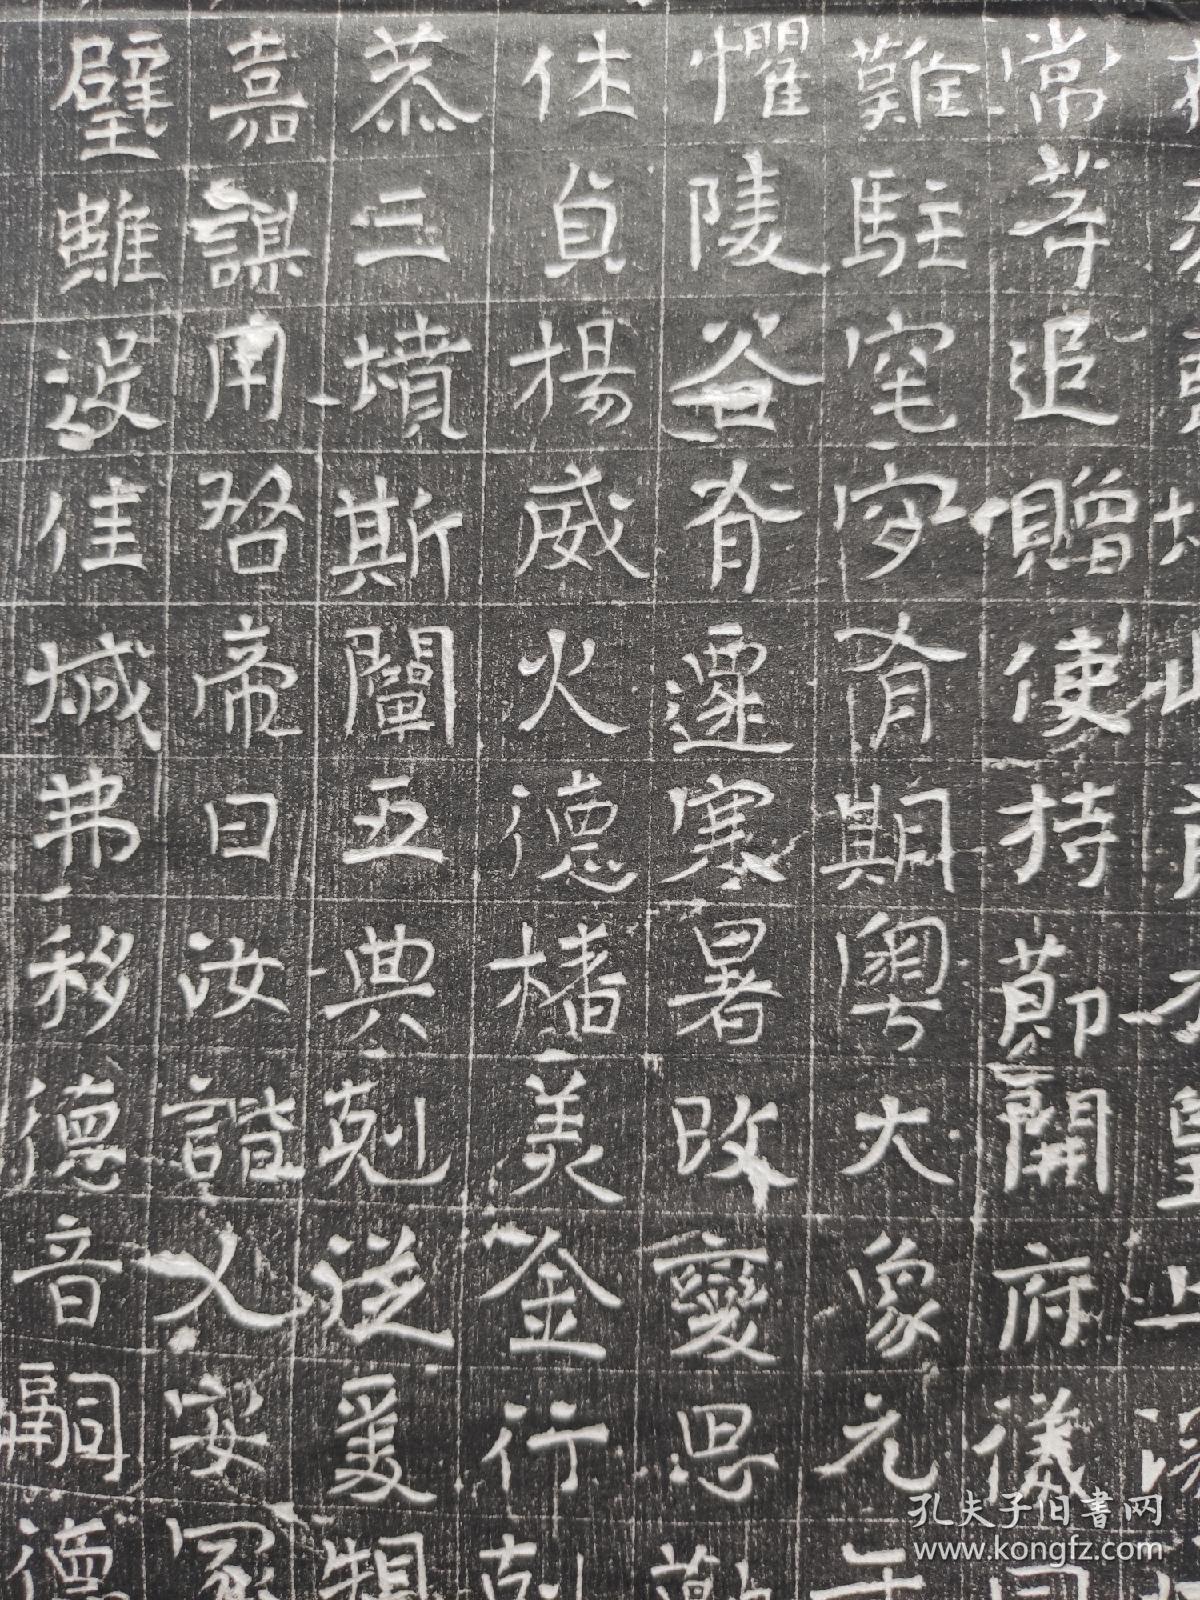 常等追贈使持節開府儀同
難駐窀穸有期粤大象元
懼陵谷有遷寒暑改變思
休貞揚威火德播美金行
恭三墳斯闡五典剋從爰
嘉謀用啓帝曰汝諧乂安
璧雖没佳城弗移德音嗣德
孔夫子旧書网
www.kongfz.com